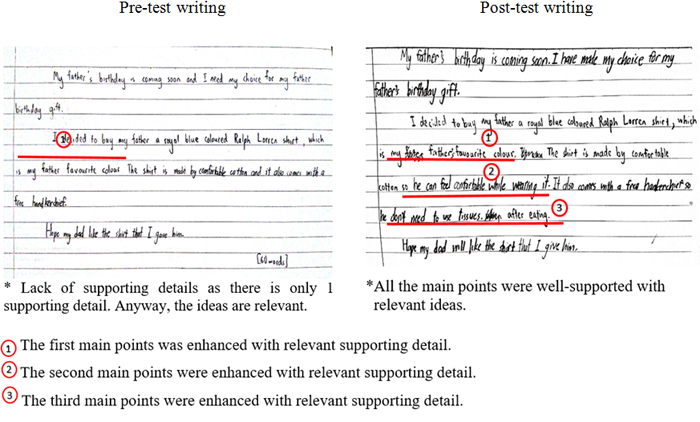 Pre-test writing
My father's birthday is coming soon and I need my choice for my father
birthday gift.
I decided to buy my father a royal blue coloured Ralph Lorren shirt, which
is my father favourite colour The shirt is made by comfortable cotton and it also comes with a
free handkerchief.
Hope my dad like the shirt that I gave him.
[60 words]
* Lack of supporting details as there is only 1
supporting detail. Anyway, the ideas are relevant.
Post-test writing
My father's birthday is coming soon. I have make my choice for my
father's birthday gift.
I decided to buy my father a royal blue coloured Ralph Lorren shirt, which
is my father's favourite colour. The shirt is made by comfortable
cotton so he can feel comfortable while wearing it. It also comes with a free so
he don't need to use tissues after eating.
Hope my dad will like the shirt that I give him.
*All the main points were well-supported with
relevant ideas.
1 The first main points was enhanced with relevant supporting detail.
2 The second main points were enhanced with relevant supporting detail.
3 The third main points were enhanced with relevant supporting detail.